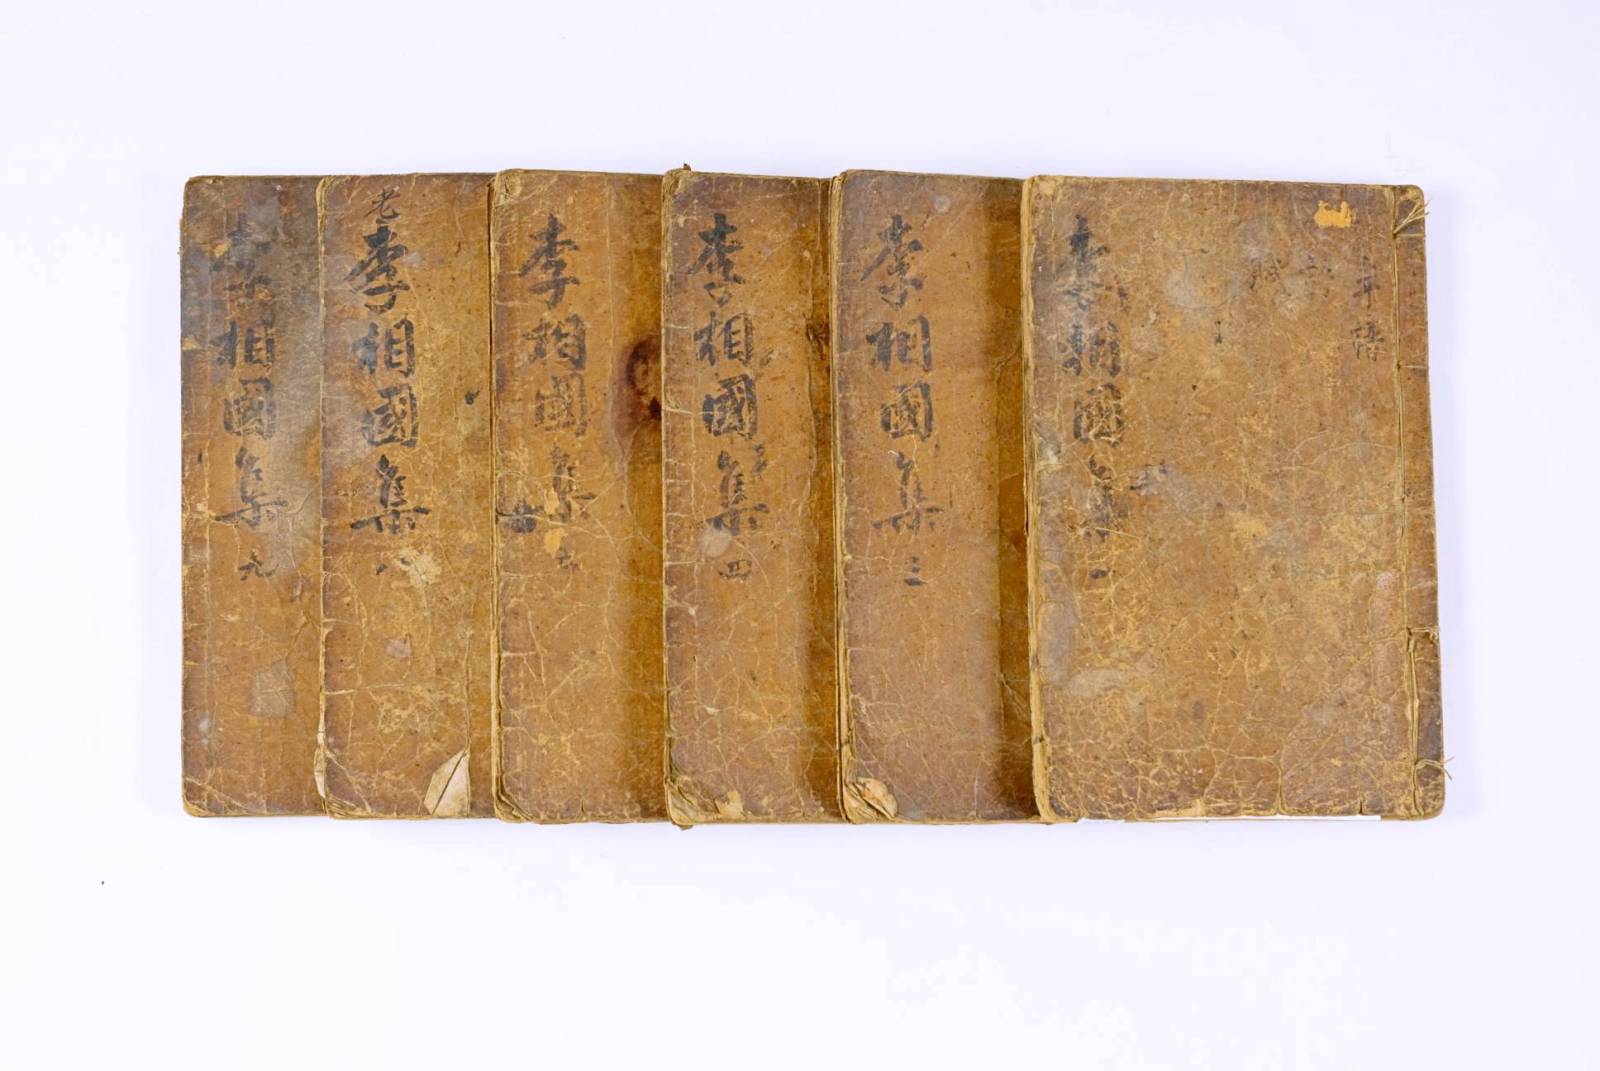 年譜
李相國集一
李相國集三
李相國集四
李相國集
老
李相國集八
李相國集九